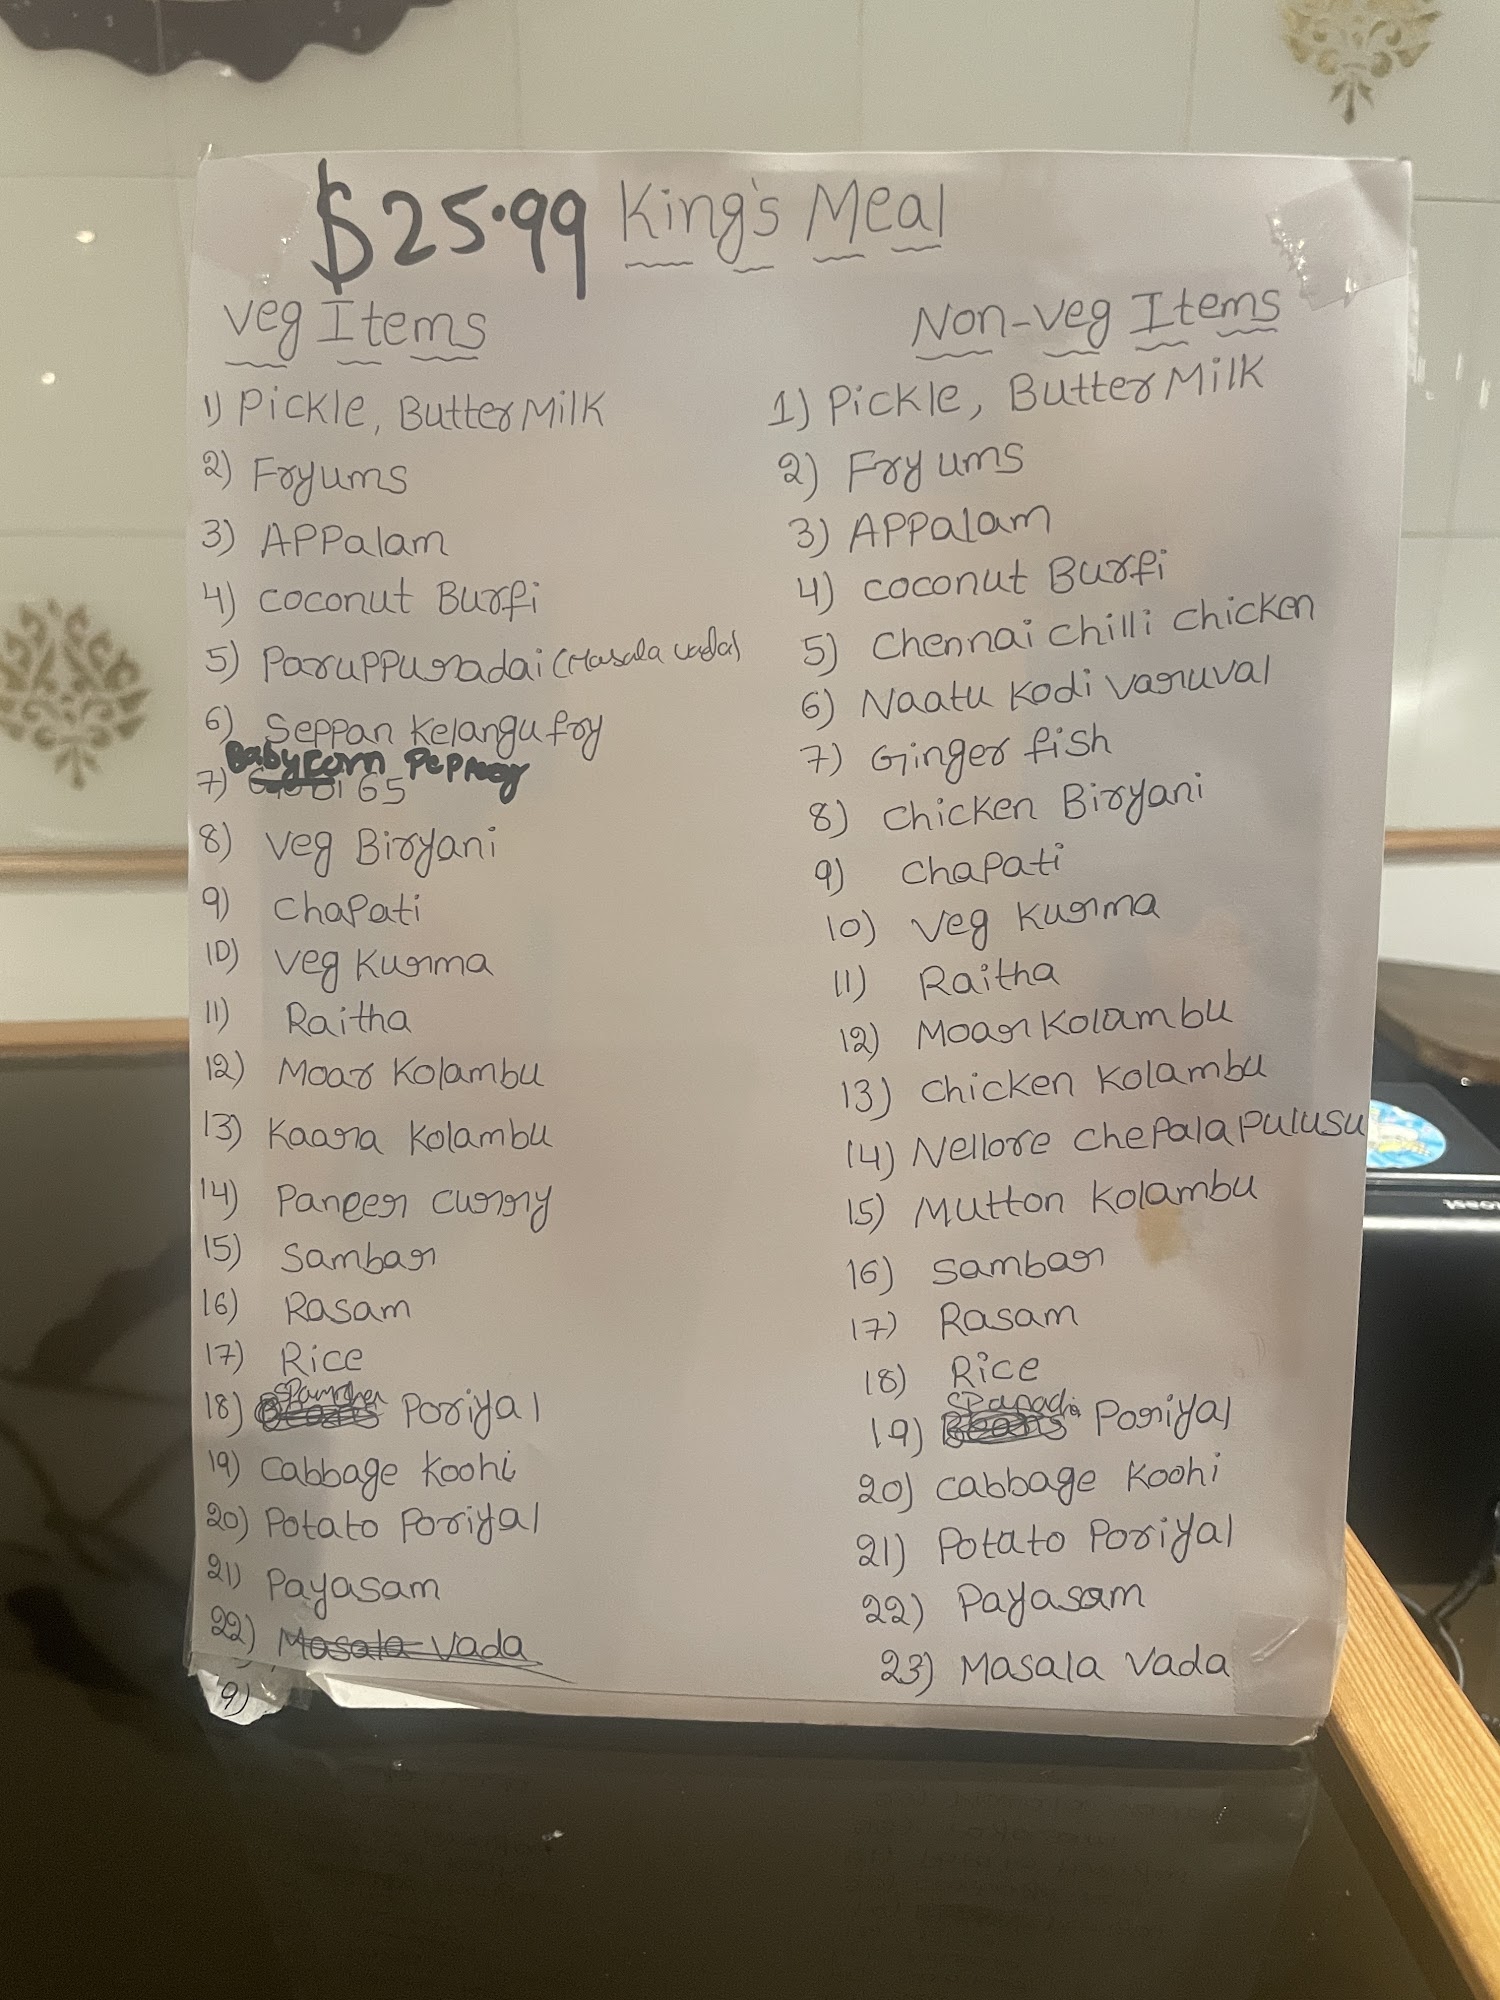 $25.99 King's Meal
Veg Items
1) Pickle, ButterMilk
2) Fryums
3) APPalam
4) coconut Burfi
5) Paruppuradai (Masala vada)
6) Seppan Kelangu fry
Babycorn Pepper
7) 65
8) Veg Biryani
9) Chapati
10) Veg Kurma
11) Raitha
12) Moar Kolambu
13) Kaara Kolambu
14) Paneer curry
15) Sambar
16) Rasam
17) Rice
18) Beans Poriyal
19) Cabbage Koohi
20) Potato Poriyal
21) Payasam
22) Masala Vada
9)
Non-Veg Items
1) Pickle, ButterMilk
2) Fryums
3) APPalam
4) coconut Burfi
5) Chennai Chilli Chicken
6) Naatu Kodi Varuval
7) Ginger fish
8) Chicken Biryani
9) Chapati
10) Veg Kurma
11) Raitha
12) Moar Kolambu
13) Chicken Kolambu
14) Nellore Chepala Pulusu
15) Mutton Kolambu
16) Sambar
17) Rasam
18) Rice
19) Beans Poriyal
20) Cabbage Koohi
21) Potato Poriyal
22) Payasam
23) Masala Vada